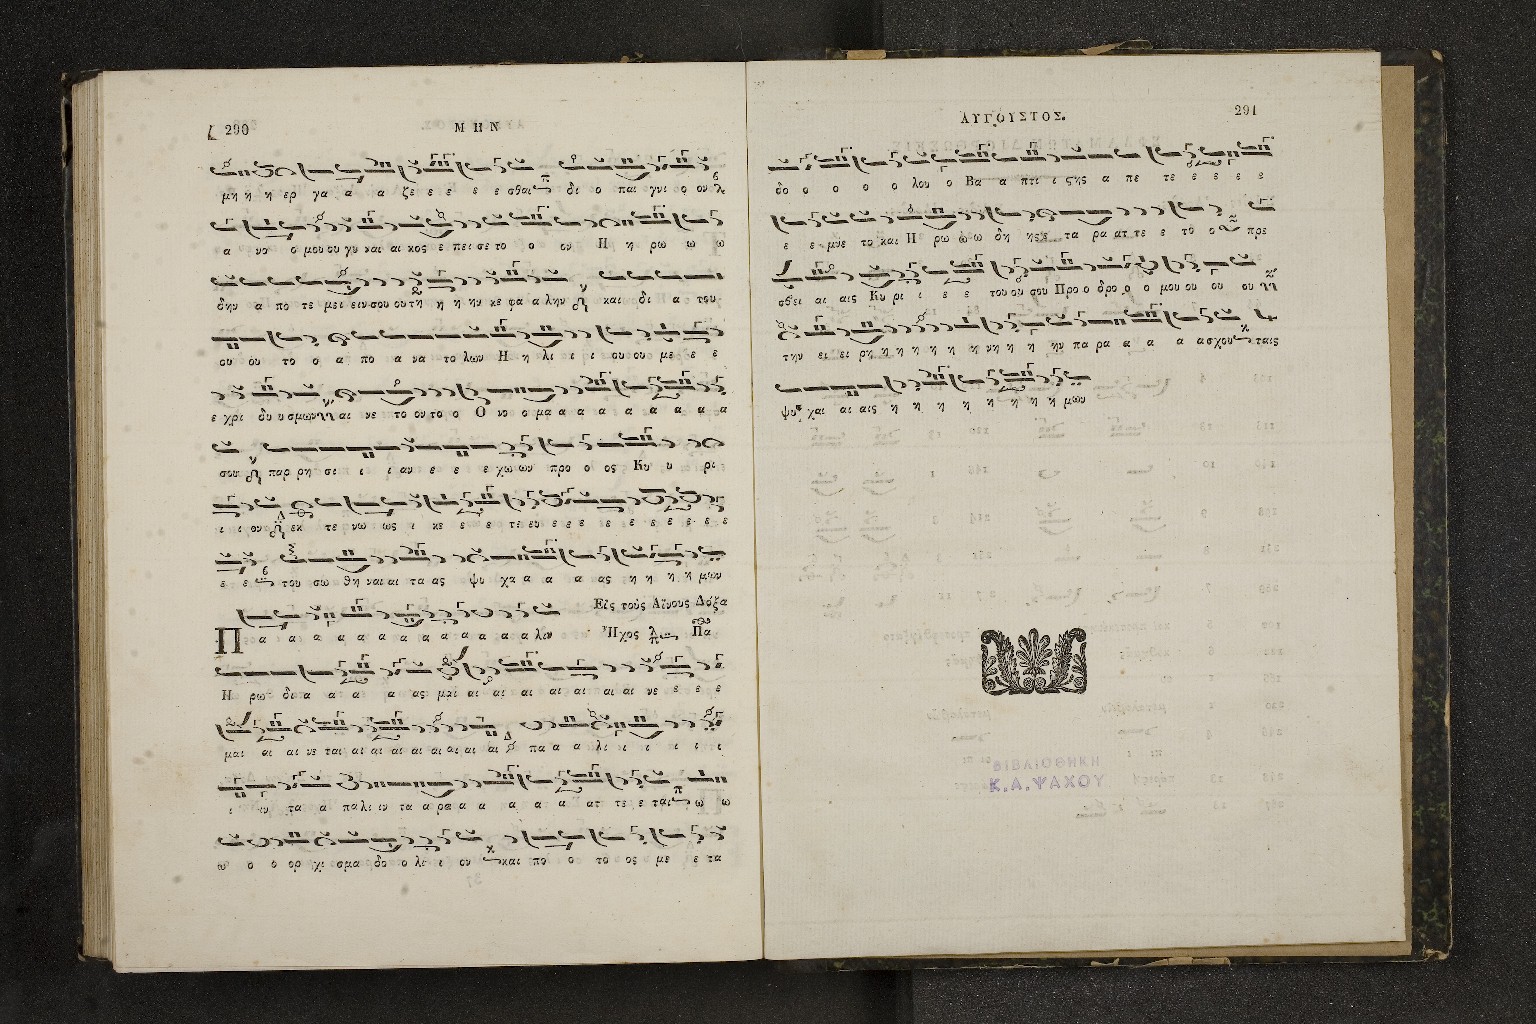 290
ΜΗΝ
μη η η ερ γα α α ζε ε ε ε ε σθαι δι ο παι γνι ο ον
α νο ο μου ου γυ ναι αι κος ε πει σε το ο ον Η η ρω ω ω
δην α πο τε μει ειν σου ου τη η η ην κε φα α λην και δι α του
ου ου το ο α πο α να το λων Η η λι ι ι ου ου με ε ε
ε χρι δυ υ σμων αι νε το ον το ο Ο νο ο μα α α α α α α α α
σου παρ ρη σι ι ι αν ε ε ε χω ων προ ο ος Κυ υ ρι
ι ι ον εκ τε νω ως ι κε ε ε τε ευ ε ε ε ε ε ε ε ε ε ε
ε ε του σω θη ναι αι τα ας ψυ χα α α α ας η η η η μων
Εἰς τοὺς Αἴνους Δόξα
Πα α α α α α α α α α α α α λιν Ἦχος Πα
Η ρω δι α α α α ας μαι αι αι αι αι αι αι αι νε ε ε ε
μαι αι αι νε ται αι αι αι αι αι αι αι αι πα α α λι ι ι ι ι ι
ι ιν τα α παλι ιν τα α ρα α α α α α ατ τε ε ται ω ω
ω ο ο ορ χι σμα δο ο λι ι ον και πο ο το ος με ε τα
ΑΥΓΟΥΣΤΟΣ.
291
δο ο ο ο ο λου ο Βα α πτι ι ςης α πε τε ε ε ε ε
ε ε μνε το και Η ρω ω ω δη ης ε τα ρα ατ τε ε το ο πρε
σβει αι αις Κυ ρι ι ε ε του ου σου Προ ο δρο ο ο μου ου ου ου
την ει ει ρη η η η η η η νη η η ην πα ρα α α α ασχου ταις
ψυ χαι αι αις η η η η η η η η μων
ΒΙΒΛΙΟΘΗΚΗ
Κ.Α.ΨΑΧΟΥ